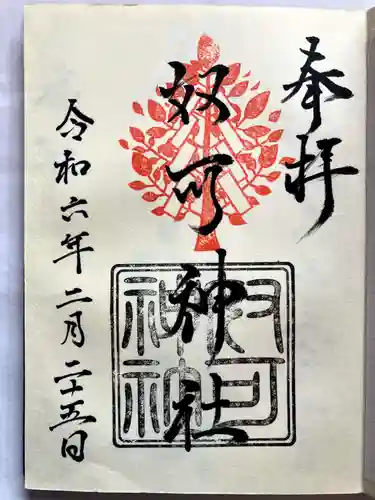 奉拝
奴可神社
奴可
神社
令和六年二月二十五日